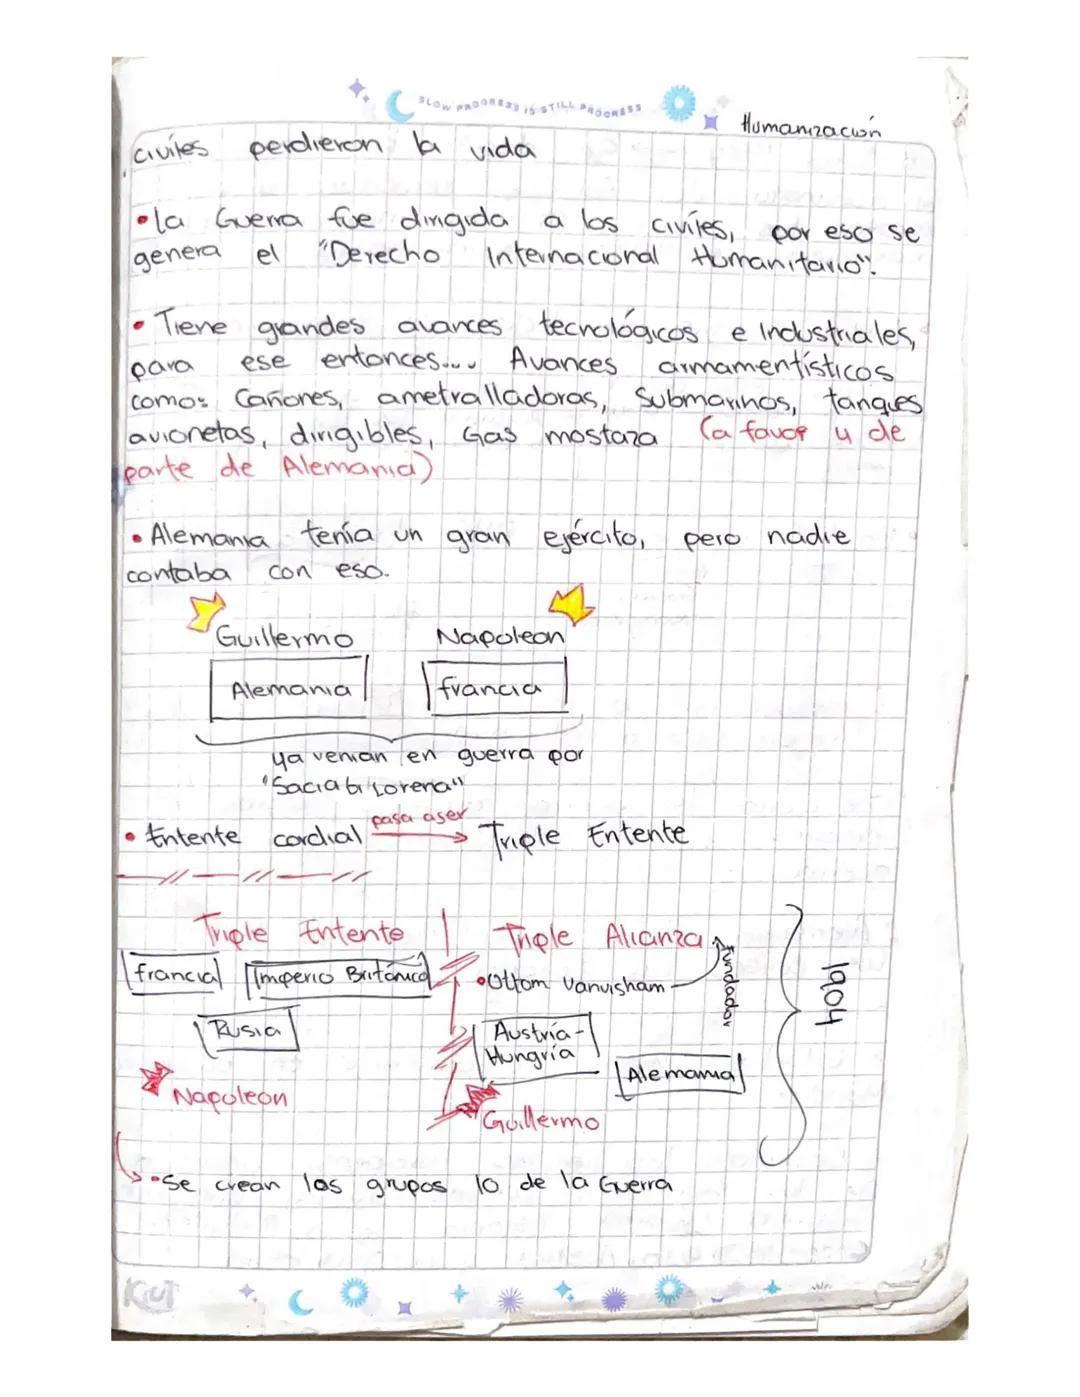 SLOW PROGRESS IS STILL PROGRESS
Humanización
civiles perdieron la vida
•la Guerra fue dirigida a los civiles, por eso se
genera el "Derecho Internacional Humanitario".
• Tiene grandes avances tecnológicos e Industriales,
para ese entonces.... Avances armamentísticos
como: Cañones, ametralladoras, Submarinos, tanques
avionetas, dirigibles, Gas mostaza (a favor y de
parte de Alemania)
• Alemania tenía un gran ejército, pero nadie
contaba con eso.
Guillermo Napoleon
Alemania francia
ya venian en guerra por
"Sacia Lorena"
• Entente cordial pasa aser Triple Entente
Triple Entente Triple Alianza
francia Imperio Británico •Ottom Vanvisham fundador
Rusia Austria-
Hungría
Alemania
1904
Napoleon
Guillermo
•Se crean los grupos 10 de la Guerra